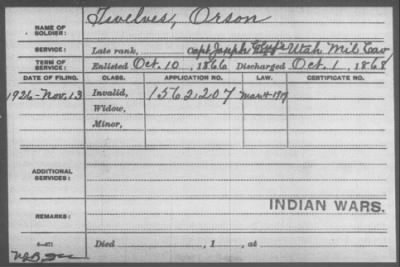 NAME OF SOLDIER: Twelves, Orson
SERVICE: Late rank, Capt Joseph Utah Mil Cav
TERM OF SERVICE: Enlisted Oct. 10, 1866 Discharged Oct. 1, 1868
DATE OF FILING. CLASS. APPLICATION NO. LAW. CERTIFICATE NO.
1926-Nov. 13 Invalid, 1562207 Mar 4-1917
Widow,
Minor,
ADDITIONAL SERVICES:
INDIAN WARS.
REMARKS:
Died , 1 , at